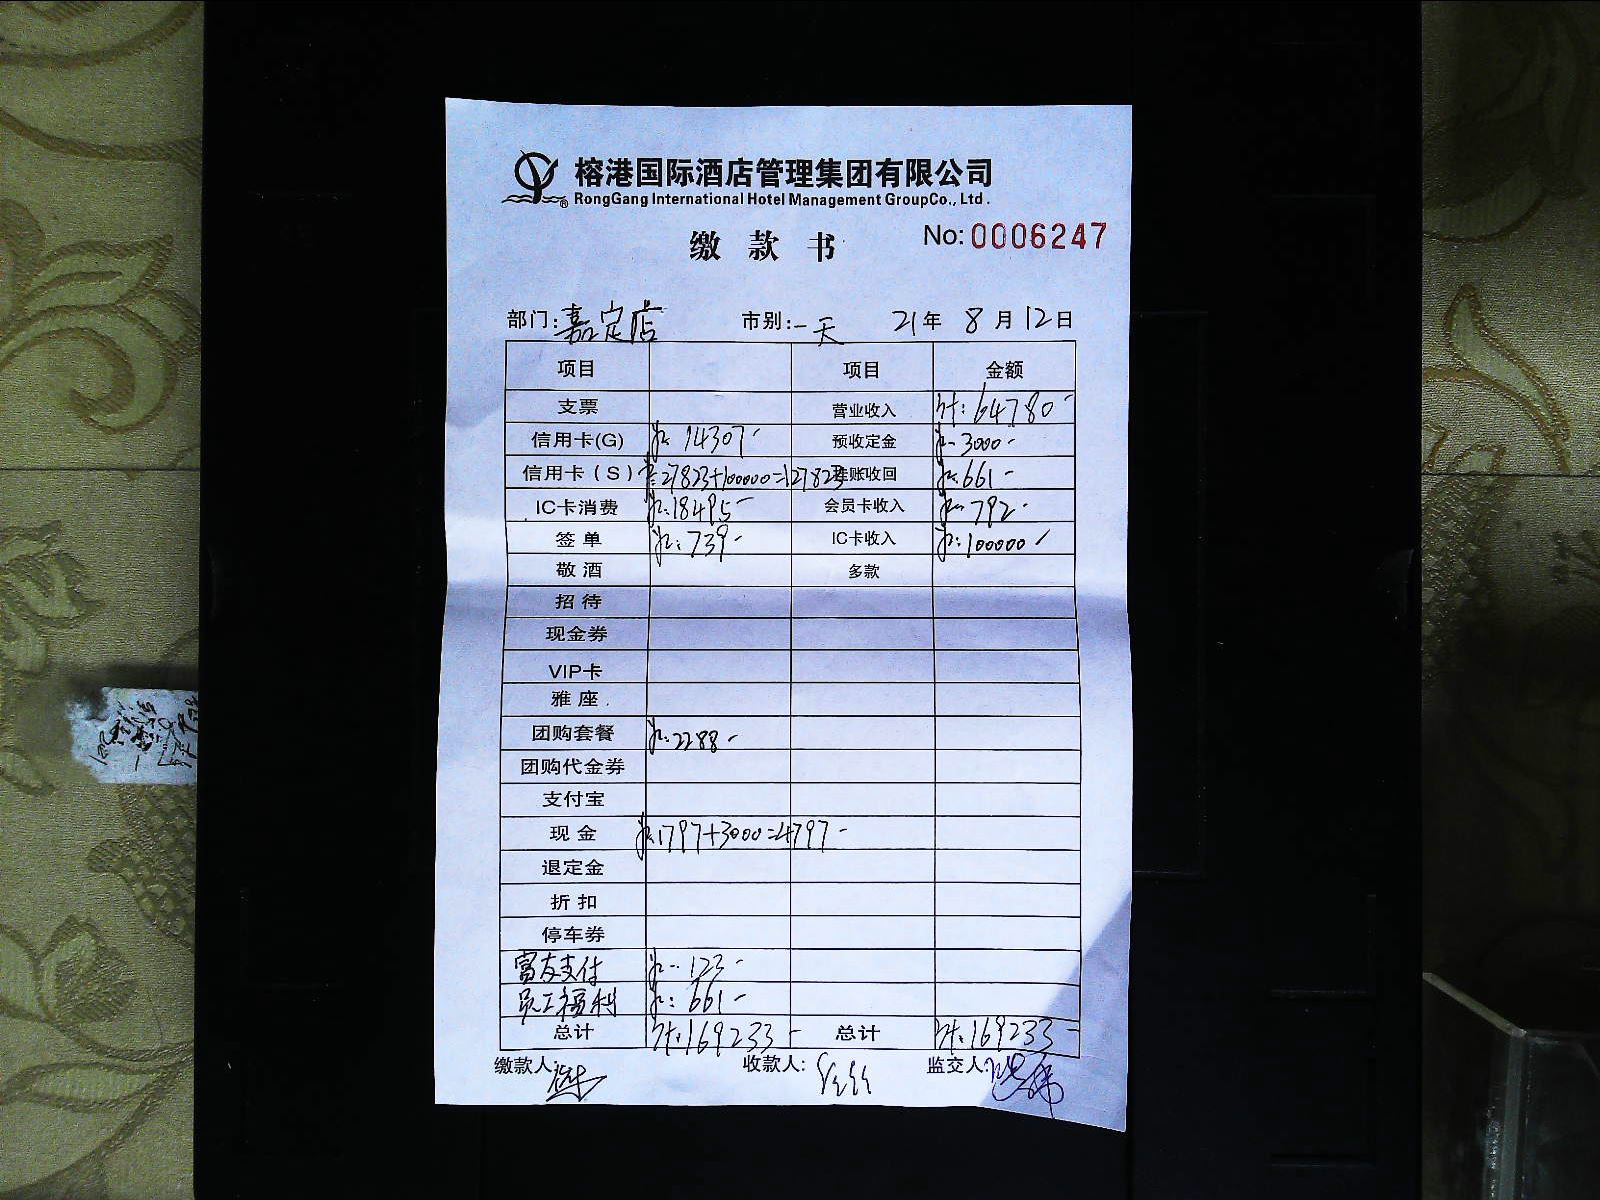 榕港国际酒店管理集团有限公司
RongGang International Hotel Management GroupCo., Ltd.
缴 款 书 No: 0006247
部门: 嘉定店 市别: 一天 21年 8月12日
项目 项目 金额
支票 营业收入 计: 64780-
信用卡(G) 14307- 预收定金 3000-
信用卡(S) 27823+100000=127823 挂账收回 661-
IC卡消费 18495- 会员卡收入 792-
签单 739- IC卡收入 100000
敬酒 多款
招待
现金券
VIP卡
雅座
团购套餐 2288-
团购代金券
支付宝
现金 1797+3000=4797-
退定金
折扣
停车券
富友支付 123-
员工福利 661-
总计 计: 169233- 总计 计: 169233-
缴款人: 收款人: 监交人: